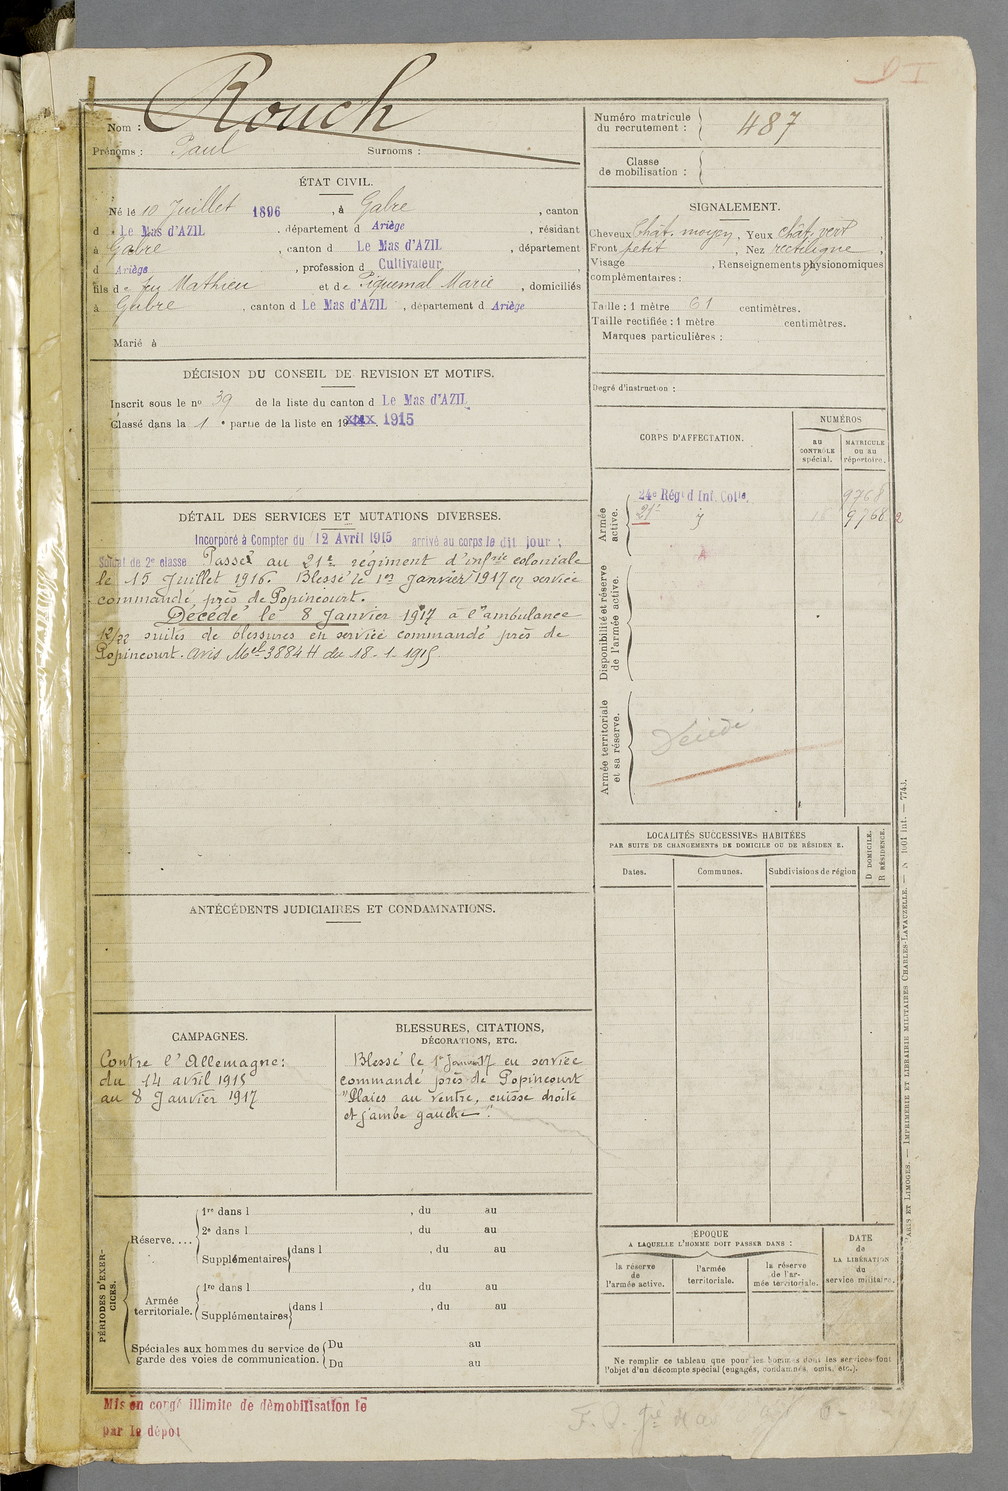 D I
Rouch
Nom :
Prénoms : Paul Surnoms :
Numéro matricule
du recrutement : 487
Classe
de mobilisation :
ÉTAT CIVIL.
Né le 10 Juillet 1896, à Gabre, canton
d Le Mas d'AZIL, département d Ariège, résidant
à Gabre, canton d Le Mas d'AZIL, département
d Ariège, profession d Cultivateur,
fils de feu Mathieu et de Piquemal Marie, domiciliés
à Gabre, canton d Le Mas d'AZIL, département d Ariège
Marié à
SIGNALEMENT.
Cheveux Chât. moyen, Yeux chât. vert,
Front petit, Nez rectiligne,
Visage , Renseignements physionomiques
complémentaires :
Taille : 1 mètre 61 centimètres.
Taille rectifiée : 1 mètre centimètres.
Marques particulières :
Degré d'instruction :
DÉCISION DU CONSEIL DE REVISION ET MOTIFS.
Inscrit sous le no 39 de la liste du canton d Le Mas d'AZIL
Classé dans la 1e partie de la liste en 19 1915
DÉTAIL DES SERVICES ET MUTATIONS DIVERSES.
Incorporé à Compter du 12 Avril 1915 arrivé au corps le dit jour ;
Soldat de 2e classe Passé au 21e régiment d'infrie coloniale
le 15 Juillet 1916. Blessé le 1er Janvier 1917 en service
commandé près de Popincourt.
Décédé le 8 Janvier 1917 à l'ambulance
12/22 suites de blessures en service commandé près de
Popincourt. avis Mel 3884 H du 18-1-191
CORPS D'AFFECTATION.
NUMÉROS
AU CONTRÔLE spécial.
MATRICULE OU AU répertoire.
Armée active.
24e Régt d'Inf. Colle. 9768
21e 9768 2
Disponibilité et réserve de l'armée active.
Armée territoriale et sa réserve.
Décédé
LOCALITÉS SUCCESSIVES HABITÉES
PAR SUITE DE CHANGEMENTS DE DOMICILE OU DE RÉSIDEN E.
Dates. Communes. Subdivisions de région
D DOMICILE.
R RÉSIDENCE.
ANTÉCÉDENTS JUDICIAIRES ET CONDAMNATIONS.
CAMPAGNES.
Contre l'Allemagne :
du 14 avril 1915
au 8 Janvier 1917
BLESSURES, CITATIONS,
DÉCORATIONS, ETC.
Blessé le 1er Janvier 17 en service
commandé près de Popincourt
"Plaies au ventre, cuisse droite
et jambe gauche".
PÉRIODES D'EXERCICES.
Réserve. ...
1re dans l , du au
2e dans l , du au
Supplémentaires dans l , du au
Armée territoriale.
1re dans l , du au
Supplémentaires dans l , du au
Spéciales aux hommes du service de
garde des voies de communication.
Du au
Du au
ÉPOQUE
A LAQUELLE L'HOMME DOIT PASSER DANS :
la réserve de l'armée active.
l'armée territoriale.
la réserve de l'armée territoriale.
DATE de LA LIBÉRATION du service militaire.
Ne remplir ce tableau que pour les hommes dont les services font
l'objet d'un décompte spécial (engagés, condamnés, omis, etc.).
PARIS ET LIMOGES. — IMPRIMERIE ET LIBRAIRIE MILITAIRES CHARLES-LAVAUZELLE. — N 1001 int. — 774J.
Mis en congé illimité de démobilisation le
par le dépôt